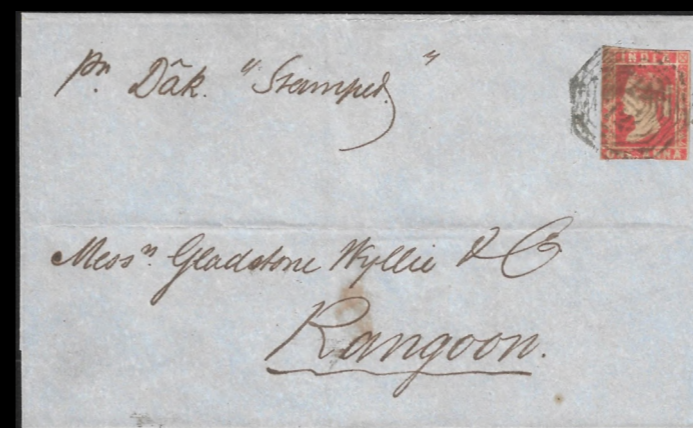 pr. Dâk. "Stamped."
INDIA
ONE ANNA
Messrs Gladstone Wyllie & Co
Rangoon.